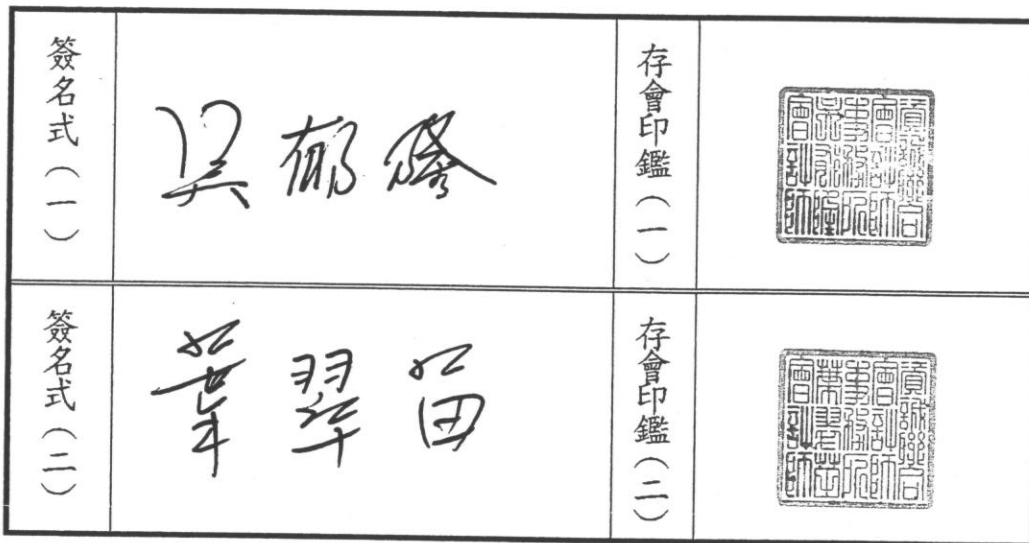 簽名式(一)
吳郁隆
存會印鑑(一)
資誠聯合
會計師
事務所
吳郁隆
會計師
簽名式(二)
葉翠苗
存會印鑑(二)
資誠聯合
會計師
事務所
葉翠苗
會計師